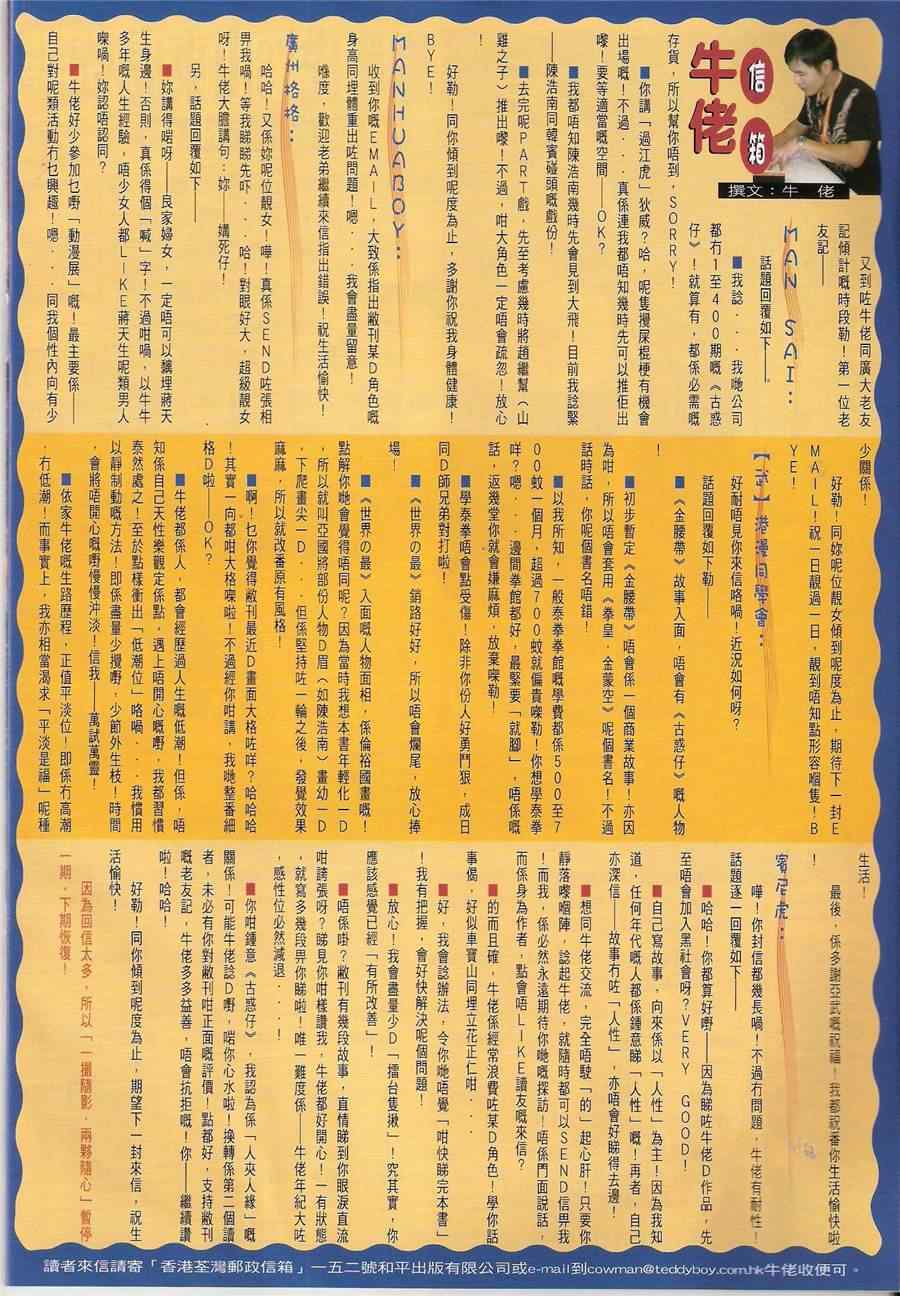 牛佬
信箱
撰文：牛 佬
又到咗牛佬同廣大老友
記傾計嘅時段勒！第一位老
友記——
MAN SAI：
話題回覆如下——
■我諗．．．我哋公司
都冇1至400期嘅《古惑
仔》！就算有，都係必需嘅
存貨，所以幫你唔到，SORRY！
■你講「過江虎」狄威？哈，呢隻攪屎棍梗有機會
出場嘅！不過．．．真係連我都唔知幾時先可以推佢出
嚟！要等適當嘅空間——OK？
■我都唔知陳浩南幾時先會見到大飛！目前我諗緊
——陳浩南同韓賓碰頭嘅戲份！
■去完呢PART戲，先至考慮幾時將趙繼幫（山
雞之子）推出嚟！不過，咁大角色一定唔會疏忽！放心
！
好勒！同你傾到呢度為止，多謝你祝我身體健康！
BYE！
MANHUABOY：
收到你嘅EMAIL，大致係指出敝刊某D角色嘅
身高同埋體重出咗問題！嗯．．．我會盡量留意！
喺度，歡迎老弟繼續來信指出錯誤！祝生活愉快！
廣州格格：
哈哈！又係妳呢位靚女！嘩！真係SEND咗張相
畀我喎！等我睇睇先吓．．．哈！對眼好大，超級靚女
呀！牛佬大膽講句：妳——媾死仔！
另，話題回覆如下——
■妳講得啱呀——良家婦女，一定唔可以黐埋蔣天
生身邊！否則，真係得個「喊」字！不過咁喎，以牛牛
多年嘅人生經驗，唔少女人都LIKE蔣天生呢類男人
㗎喎！妳認唔認同？
■牛佬好少參加乜嘢「動漫展」嘅！最主要係——
自己對呢類活動冇乜興趣！嗯．．．同我個性內向有少
少關係！
好勒！同妳呢位靚女傾到呢度為止，期待下一封E
MAIL！祝一日靚過一日，靚到唔知點形容嗰隻！B
YE！
【武】港漫同學會：
好耐唔見你來信咯喎！近況如何呀？
話題回覆如下勒——
■《金腰帶》故事入面，唔會有《古惑仔》嘅人物
！
■初步暫定《金腰帶》唔會係一個商業故事！亦因
為咁，所以唔會套用《拳皇．金蒙空》呢個書名！不過
話時話，你呢個書名唔錯！
■以我所知，一般泰拳拳館嘅學費都係500至7
00蚊一個月，超過700蚊就偏貴㗎勒！你想學泰拳
咩？嗯．．．邊間拳館都好，最緊要「就腳」，唔係嘅
話，返幾堂你就會嫌麻煩，放棄㗎勒！
■學泰拳唔會點受傷！除非你份人好勇鬥狠，成日
同D師兄弟對打啦！
■《世界の最》銷路好好，所以唔會爛尾，放心捧
場！
■《世界の最》入面嘅人物面相，係倫裕國畫嘅！
點解你哋會覺得唔同呢？因為當時我想本書年輕化一D
，所以就叫亞國將部份人物D眉（如陳浩南）畫幼一D
，下爬畫尖一D．．．但係堅持咗一輪之後，發覺效果
麻麻，所以就改番原有風格！
■啊！乜你覺得敝刊最近D畫面大格咗咩？哈哈哈
！其實一向都咁大格㗎啦！不過經你咁講，我哋整番細
格D啦——OK？
■牛佬都係人，都會經歷過人生嘅低潮！但係，唔
知係自己天性樂觀定係點，遇上唔開心嘅嘢，我都習慣
泰然處之！至於點樣衝出「低潮位」咯喎．．．我慣用
以靜制動嘅方法！即係盡量少攪嘢，少節外生枝！時間
，會將唔開心嘅嘢慢慢沖淡！信我——萬試萬靈！
■依家牛佬嘅生路歷程，正值平淡位！即係冇高潮
，冇低潮！而事實上，我亦相當渴求「平淡是福」呢種
生活！
最後，係多謝亞武嘅祝福！我都祝番你生活愉快啦
！
賓尼虎：
嘩！你封信都幾長喎！不過冇問題，牛佬有耐性！
話題逐一回覆如下——
■哈哈！你都算好嘢——因為睇咗牛佬D作品，先
至唔會加入黑社會呀？VERY GOOD！
■自己寫故事，向來係以「人性」為主！因為我知
道，任何年代嘅人都係鍾意睇「人性」嘅！再者，自己
亦深信——故事冇咗「人性」，亦唔會好睇得去邊！
■想同牛佬交流，完全唔駛「的」起心肝！只要你
靜落嚟嗰陣，諗起牛佬，就隨時都可以SEND信畀我
！而我，係必然永遠期待你哋嘅探訪！唔係門面說話，
而係身為作者，點會唔LIKE讀友嘅來信？
■的而且確，牛佬係經常浪費咗某D角色！學你話
事偈，好似車寶山同埋立花正仁咁．．．
好，我會諗辦法，令你哋唔覺「咁快睇完本書」
！我有把握，會好快解決呢個問題！
■放心！我會盡量少D「擂台隻揪」！究其實，你
應該感覺已經「有所改善」！
■唔係啩？敝刊有幾段故事，直情睇到你眼淚直流
咁誇張呀？睇見你咁樣讚我，牛佬都好開心！一有狀態
，就寫多幾段畀你睇啦！唯一難度係——牛佬年紀大咗
，感性位必然減退．．．！
■你咁鍾意《古惑仔》，我認為係「人夾人緣」嘅
關係！可能牛佬諗D嘢，啱你心水啦！換轉係第二個讀
者，未必有你對敝刊咁正面嘅評價！點都好，支持敝刊
嘅老友記，牛佬多多益善，唔會抗拒嘅！你——繼續讚
啦！哈哈！
好勒！同你傾到呢度為止，期望下一封來信，祝生
活愉快！
因為回信太多，所以「一攤隨影．兩夥隨心」暫停
一期，下期恢復！
讀者來信請寄「香港荃灣郵政信箱」一五二號和平出版有限公司或e-mail到cowman@teddyboy.com.hk牛佬收便可。